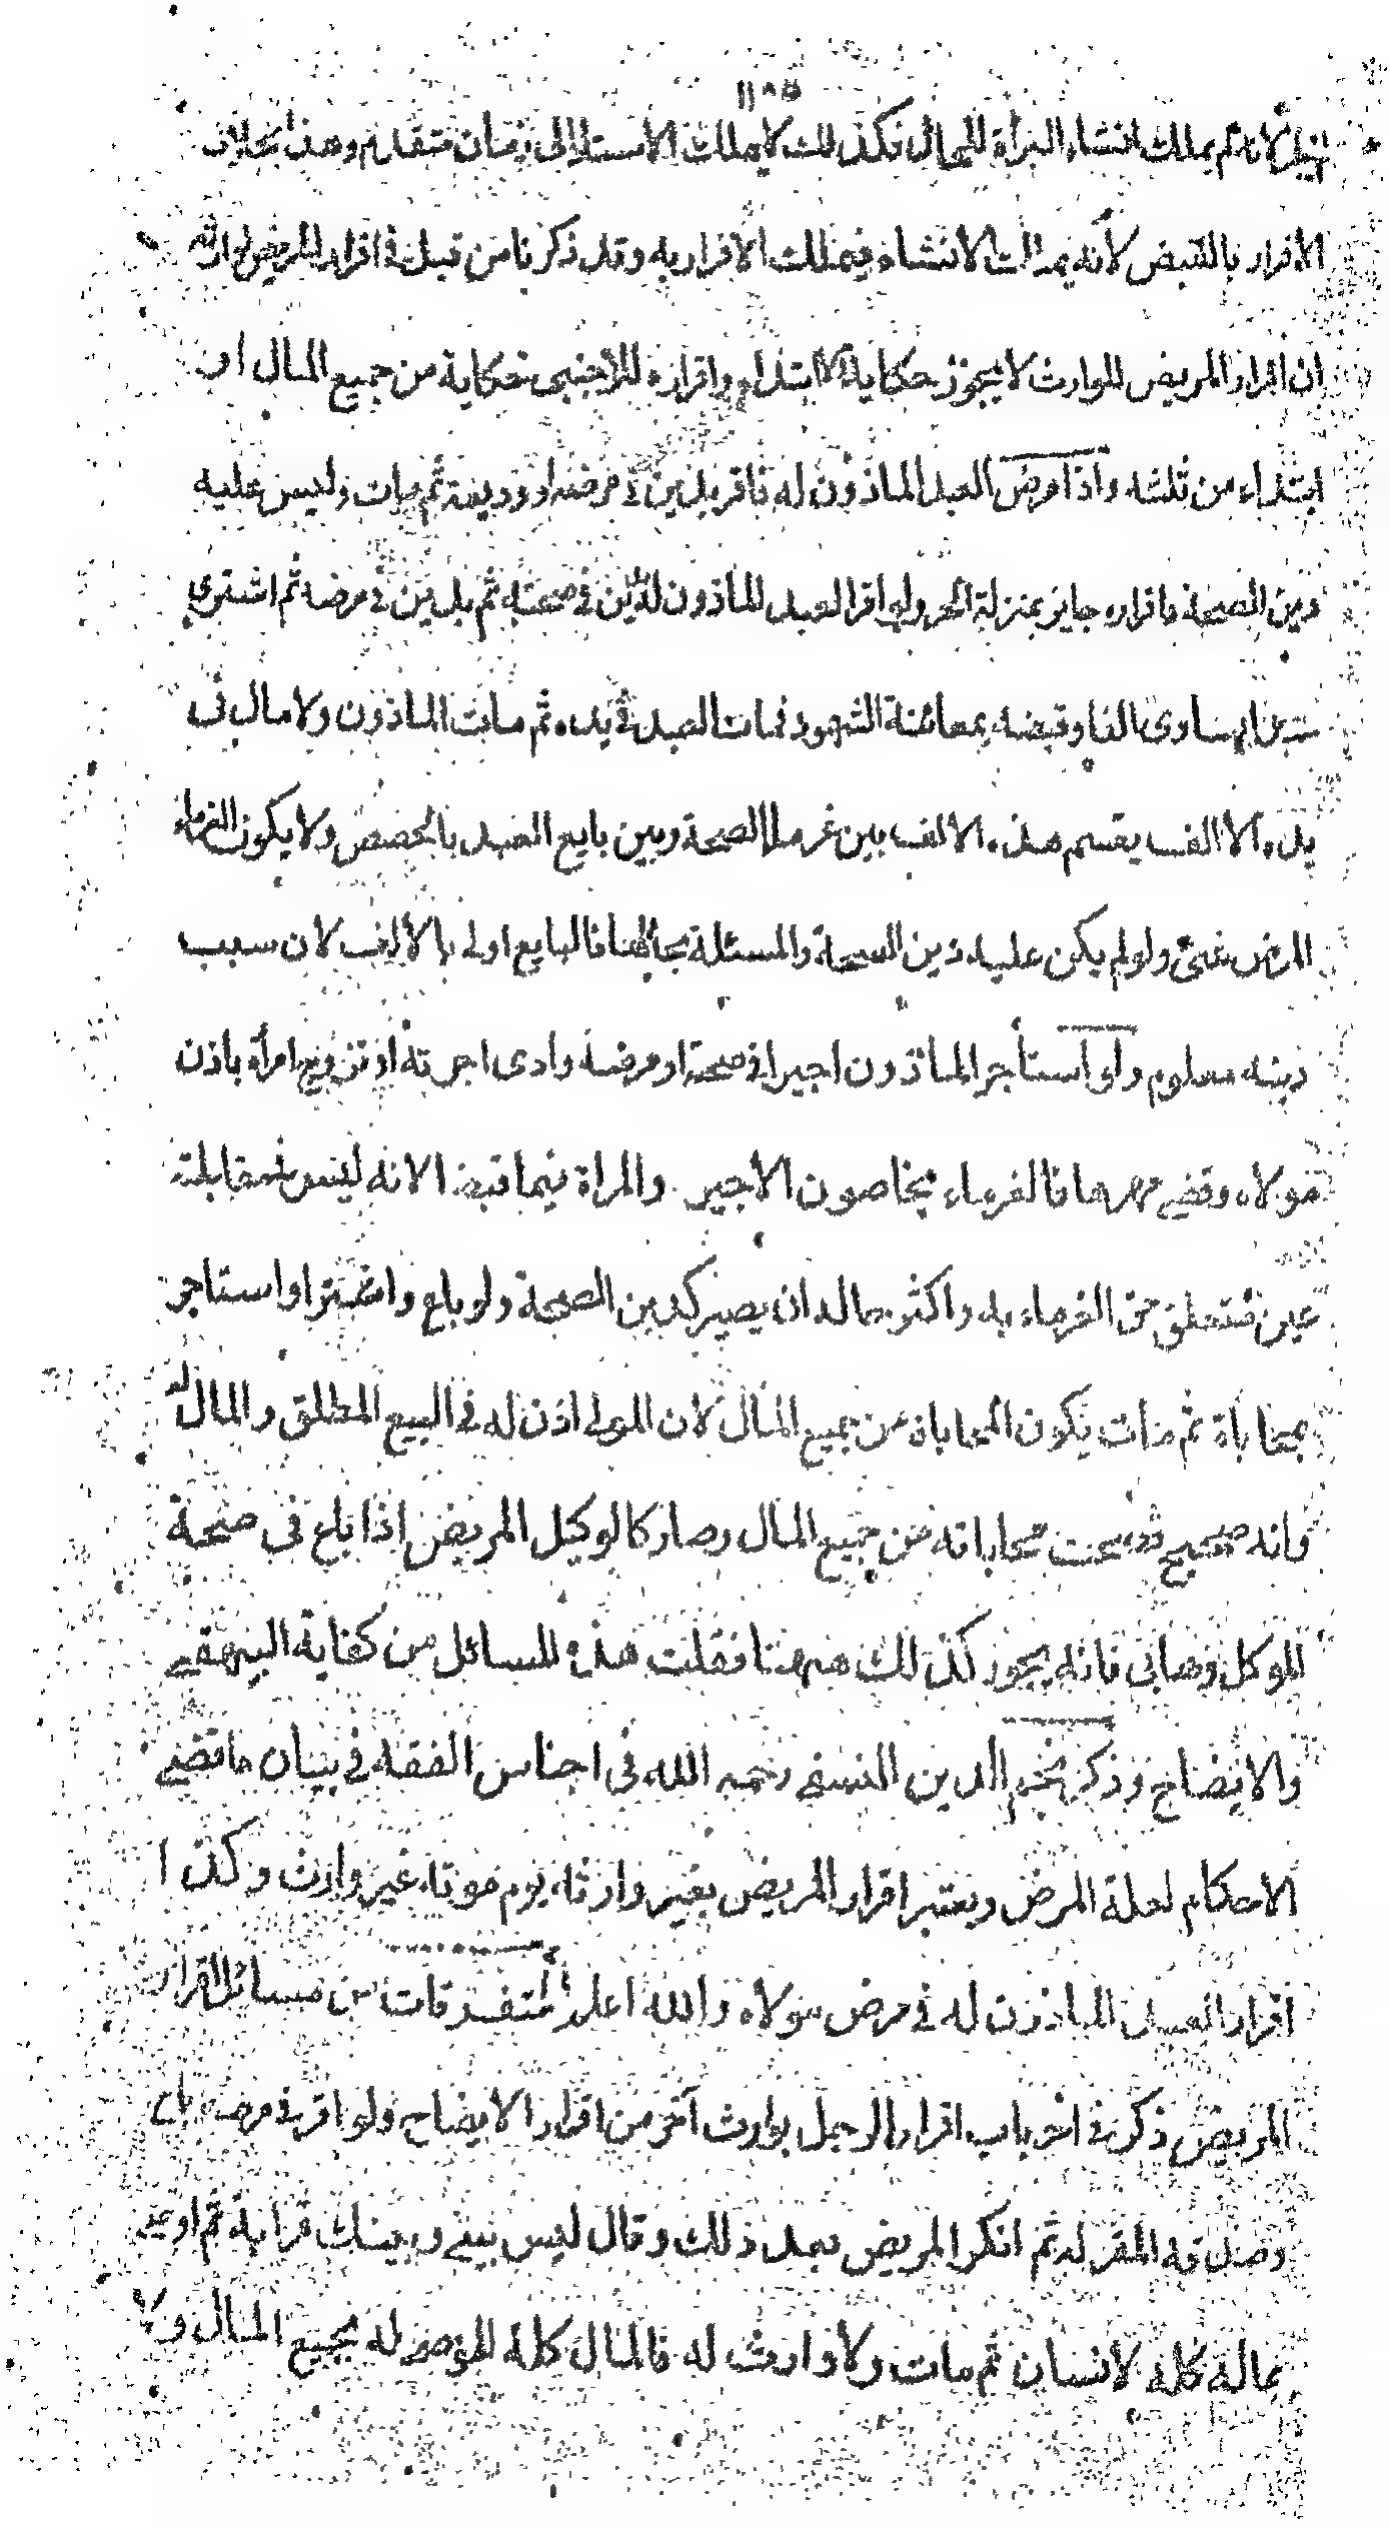 ١١٨٥
لأنه لم يملك انشاء البراة للحال فكذلك لا يملك الاسناد الى زمان متقادم وهذا بخلاف
الاقرار بالقبض لأنه يملك الانشاء فيملك الاقرار به وقد ذكرنا من قبل في اقرار المريض لوارثه
ان اقرار المريض للوارث لا يجوز حكاية ولا ابتداء واقراره للاجنبى حكاية من جميع المال او
ابتداء من ثلثه واذا مرض العبد الماذون له فاقر بدين في مرضه او وديعة ثم مات وليس عليه
دين الصحة فاقراره جايز بمنزلة الحر ولو اقر العبد الماذون له بدين في صحته ثم بدين في مرضه ثم اشترى
عبدا يساوى الفا وقبضه بمعائنة الشهود فمات العبد في يده ثم مات الماذون ولا مال فى
يده الا الف يقسم هذه الالف بين غرماء الصحة وبين بايع العبد بالحصص ولا يكون لغرماء
المرض شئ ولو لم يكن عليه دين الصحة والمسئلة بحالها فالبايع اولى بالالف لان سبب
دينه معلوم ولو استأجر الماذون اجيرا في صحته او مرضه وادى اجرته او تزوج امرأة باذن
مولاه وقضى مهرها فالغرماء يخاصون الاجير والمراة فيما قبضا لانه ليس بمقابلة
عين فتعلق حق الغرماء به واكثر حاله ان يصير كدين الصحة ولو باع واشترا واستاجر
بمحاباة ثم مات يكون المحاباة من جميع المال لان المولى اذن له في البيع المطلق والمال له
وانه صحيح فصحت محاباته من جميع المال وصار كالوكيل المريض اذا باع فى صحة
الموكل وحابى فانه يجوز كذلك ههنا فقلت هذه المسائل من كفاية البيهقى
والايضاح وذكر نجم الدين النسفى رحمه الله فى اجناس الفقه في بيان ما قضى
الاحكام لعلة المرض ويعتبر اقرار المريض بغير وارثه يوم موته غير وارث وكذا
اقرار العبد الماذون له في مرض مولاه والله اعلم المتفرقات من مسائل اقرار
المريض ذكر في اخر باب اقرار الرجل بوارث آخر من اقرار الايضاح ولو اقر في مرضه باخ
وصدقه المقر له ثم انكر المريض بعد ذلك وقال ليس بينى وبينك قرابة ثم اوصى
بماله كله لانسان ثم مات ولا وارث له فالمال كله للموصى له بجميع المال ولا